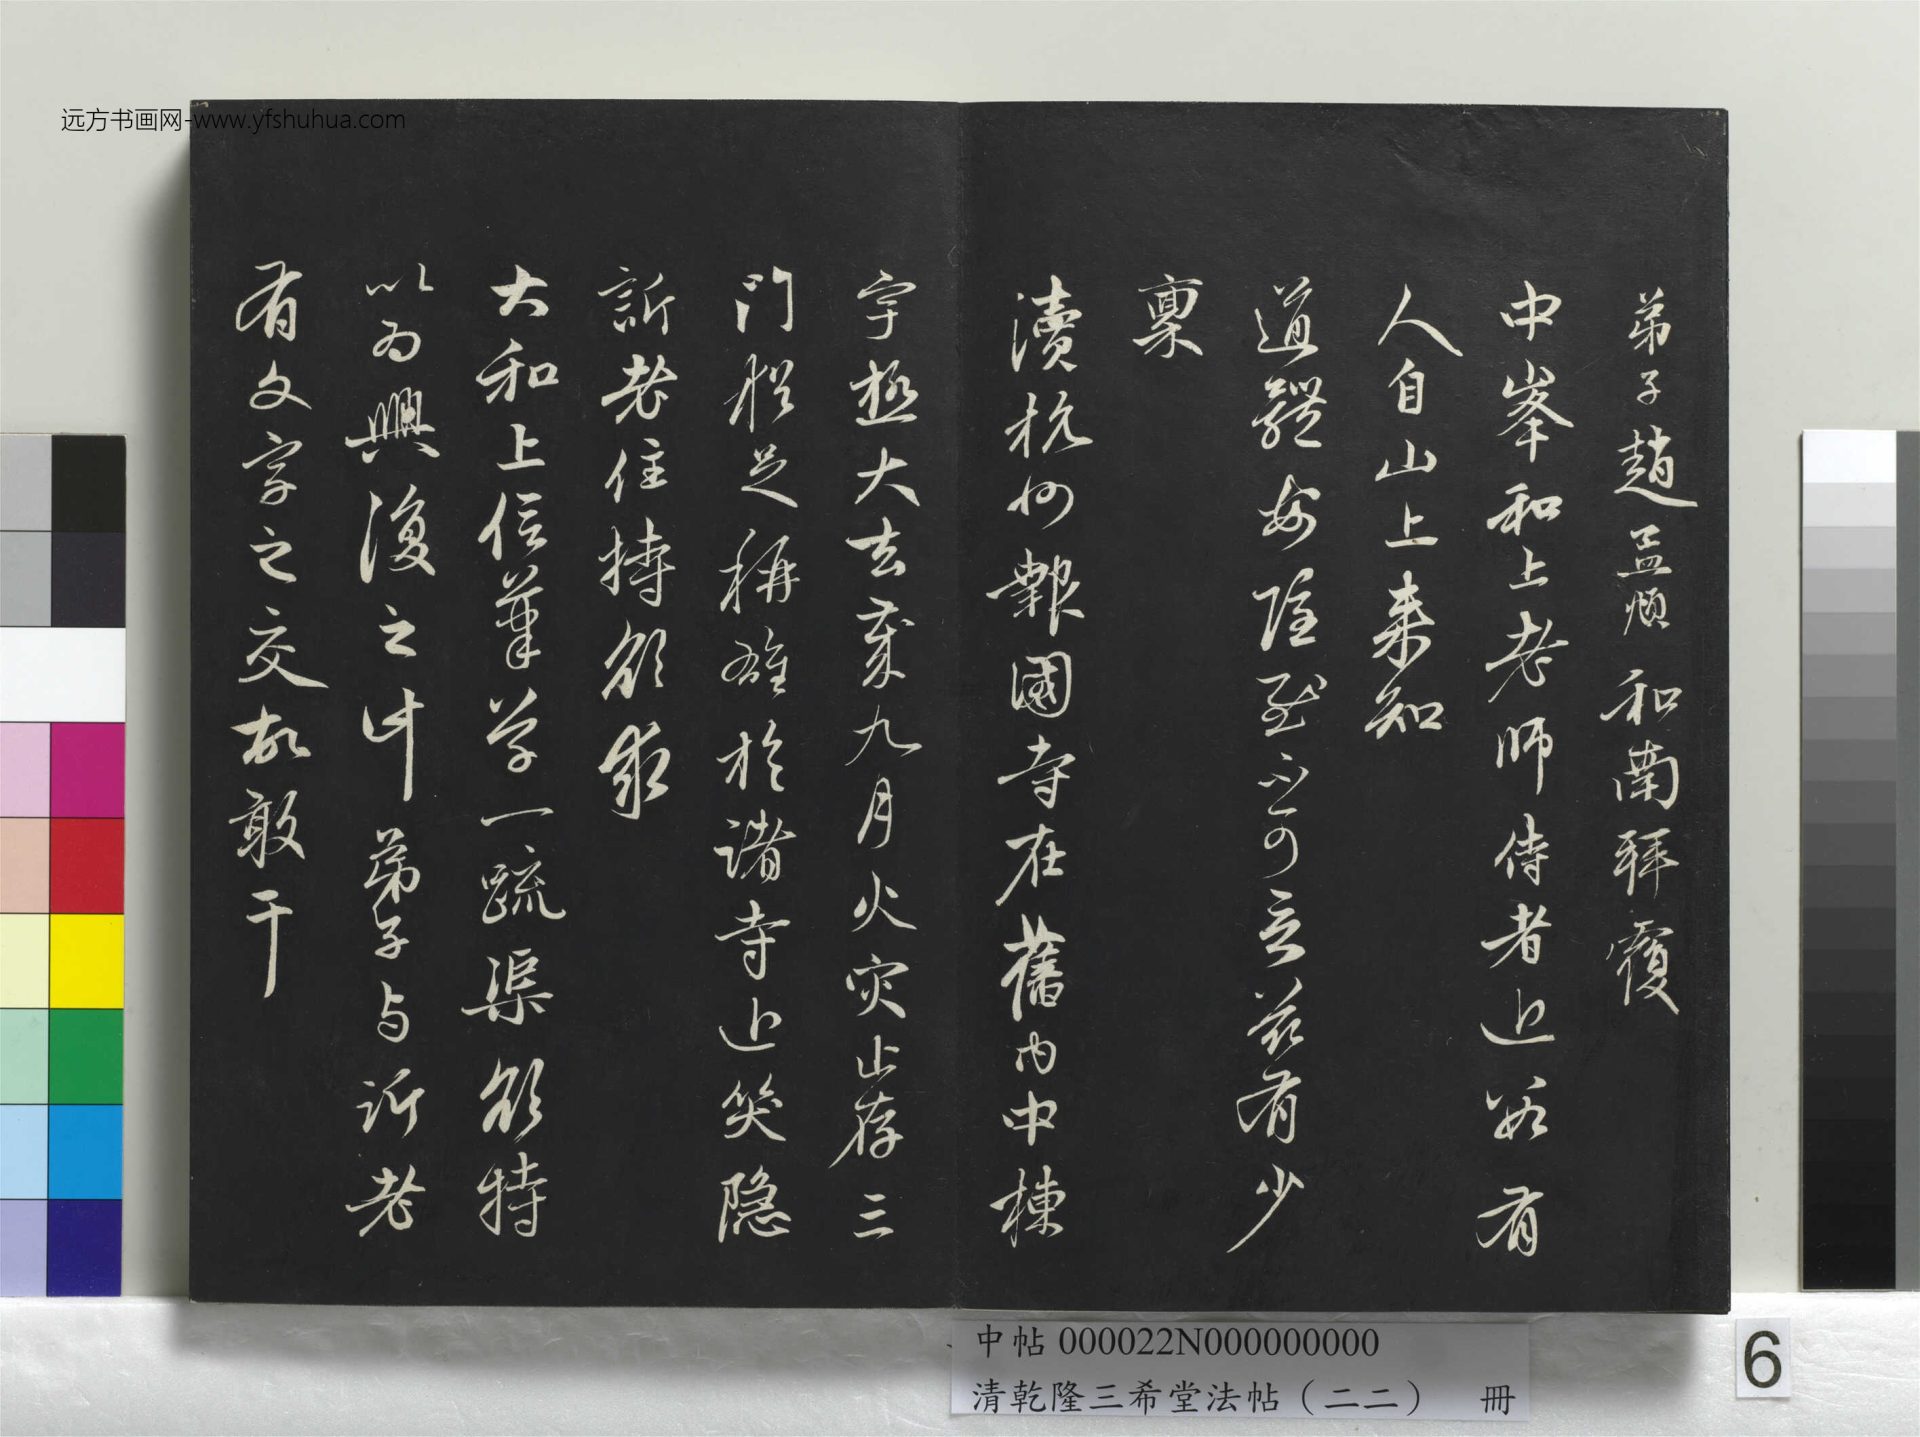 远方书画网-www.yfshuhua.com
弟子趙孟頫和南拜覆
中峯和上老師侍者近必有
人自山上来知
道體安隐至慰不可言茲有少
稟
瀆杭州報國寺在舊内中棟
宇極大去歲九月火灾止存三
門然足稱雄於諸寺近笑隐
訢老住持欲求
大和上信筆學一疏渠欲特
以為興復之
弟子与訢老
有文字之交故敢干
中帖000022N000000000
清乾隆三希堂法帖（二二） 冊
6